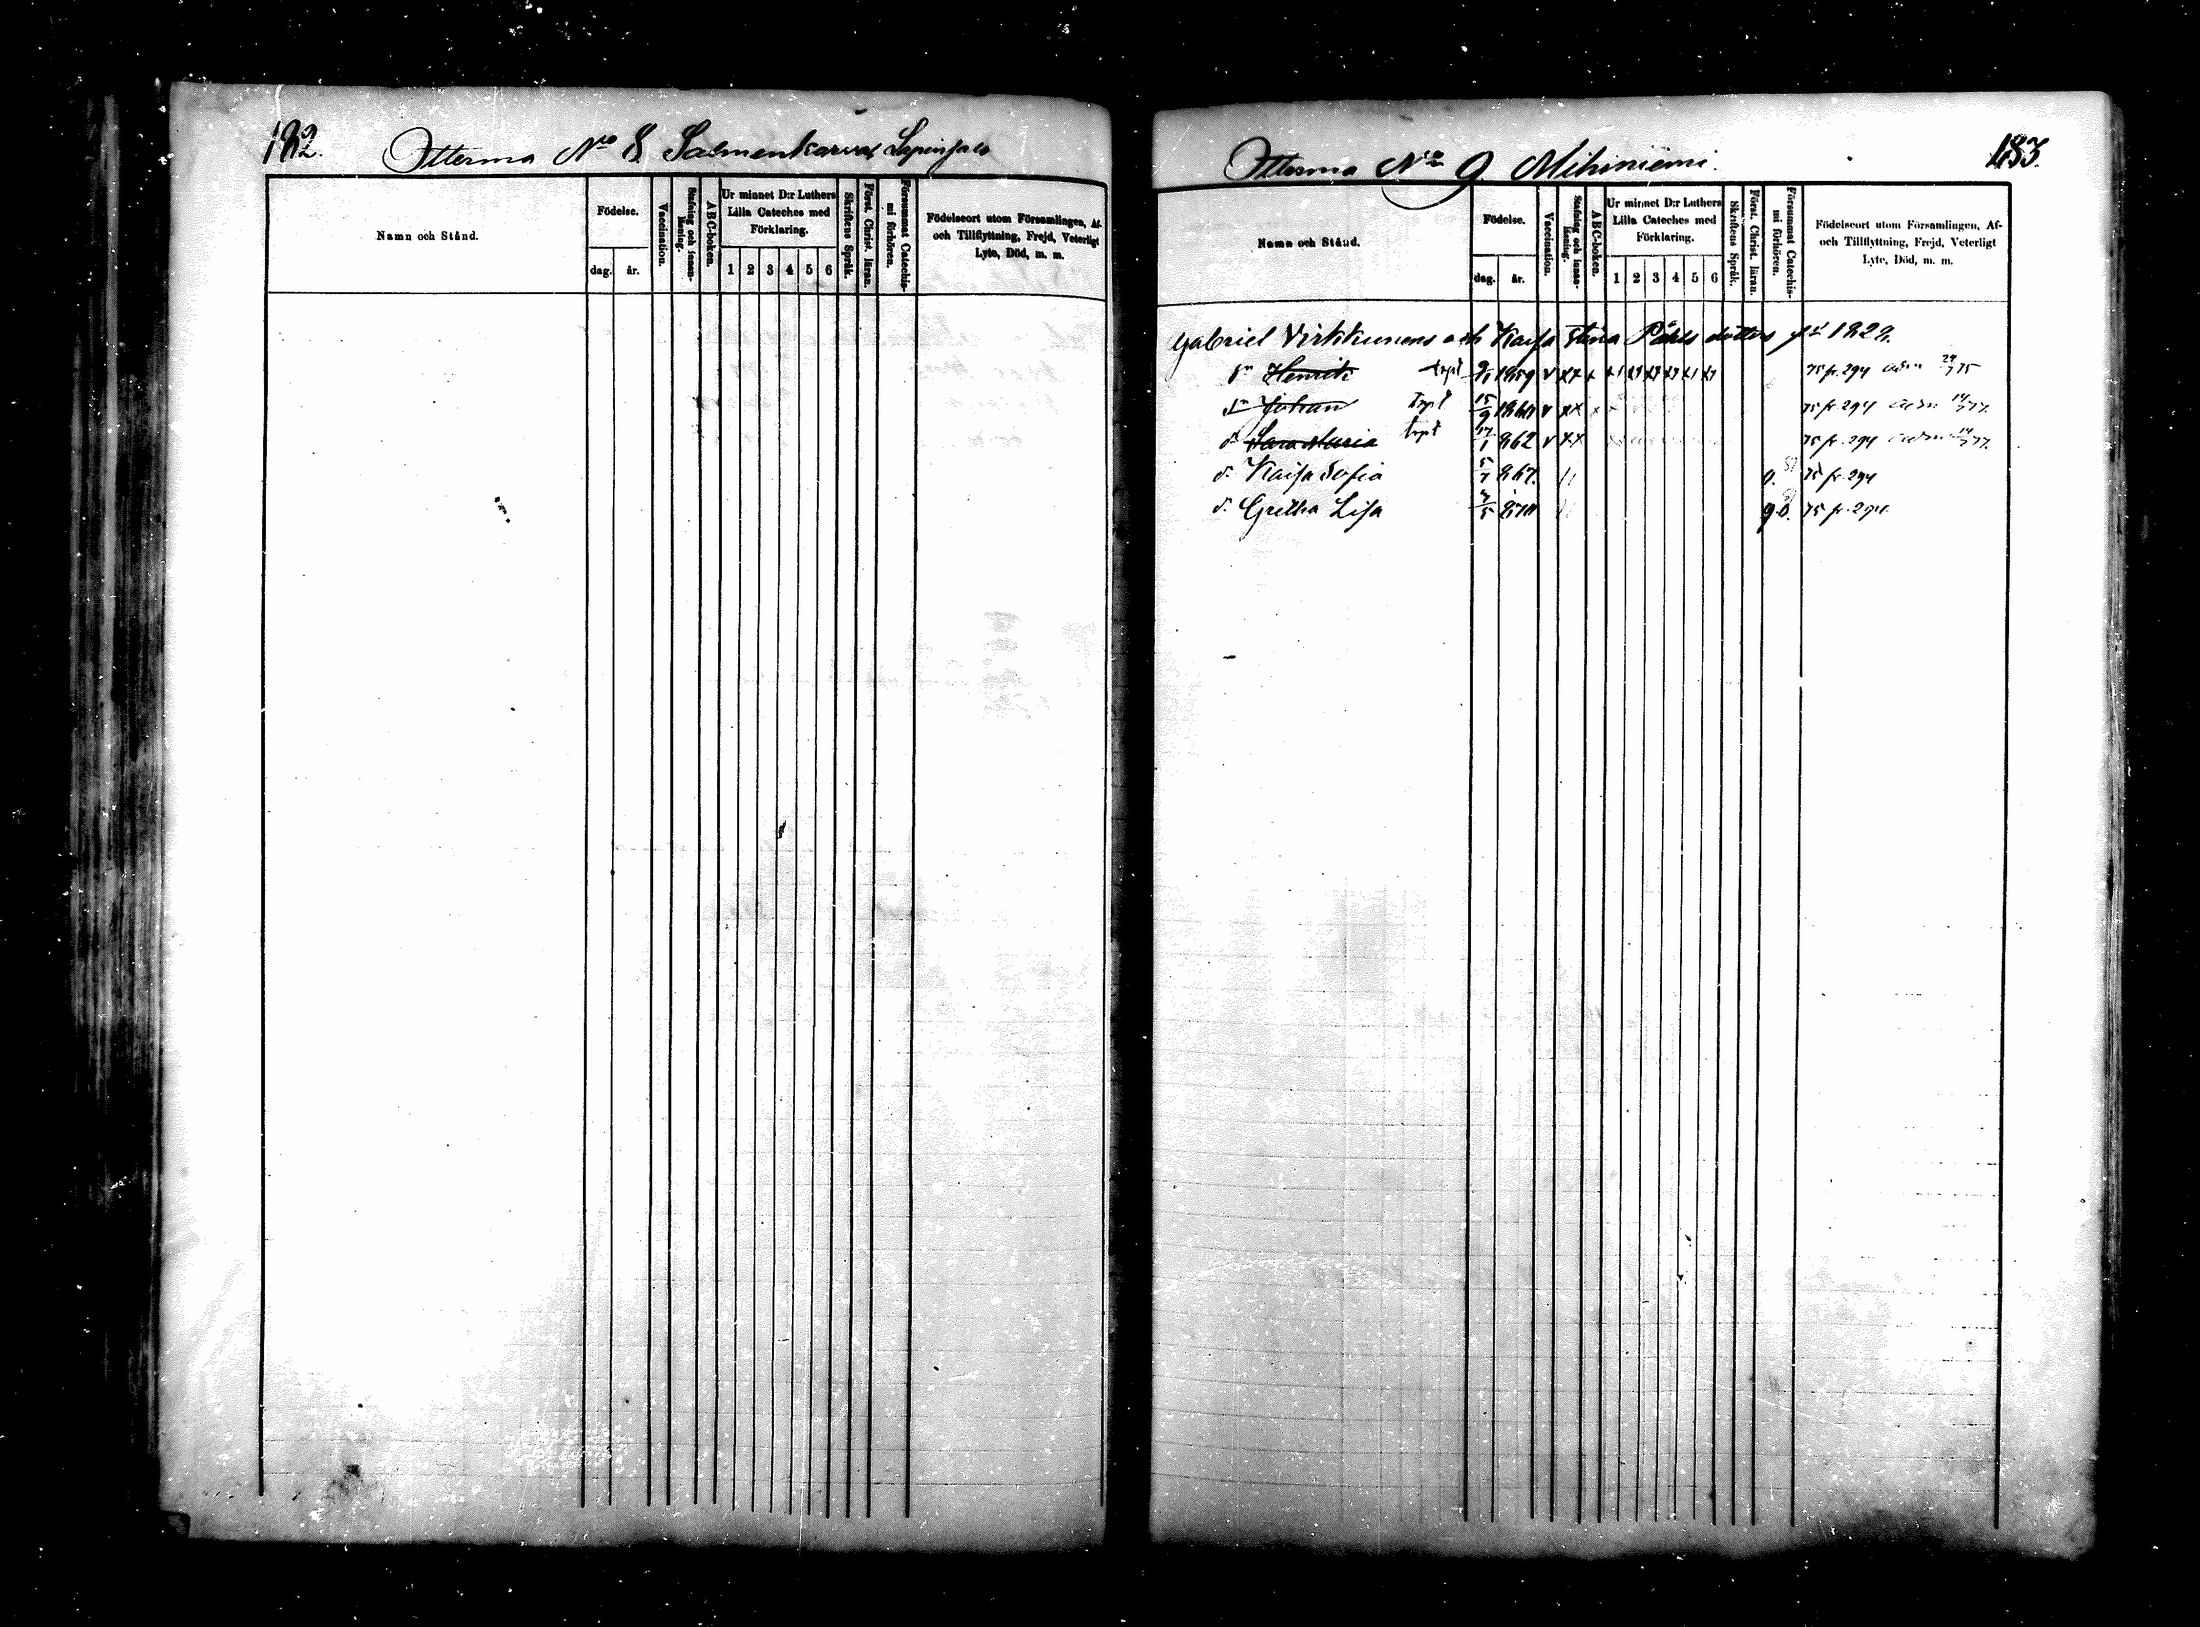 182.
Otterma No 8 Salmenkarvas
Namn och Stånd.
Födelse.
dag.
år.
Vaccination.
Stafning och innan-läsning.
ABC-boken.
Ur minnet D:r Luthers
Lilla Cateches med
Förklaring.
1 2 3 4 5 6
Skriftens Språk.
Först. Christ. läran.
Försummat Catechis-
mi förhören.
Födelseort utom Församlingen, Af-
och Tillflyttning, Frejd, Veterligt
Lyte, Död, m. m.
183.
Otterma No 9 Mihiniemi.
Namn och Stånd.
Födelse.
dag.
år.
Vaccination.
Stafning och innan-läsning.
ABC-boken.
Ur minnet D:r Luthers
Lilla Cateches med
Förklaring.
1 2 3 4 5 6
Skriftens Språk.
Först. Christ. läran.
Försummat Catechis-
mi förhören.
Födelseort utom Församlingen, Af-
och Tillflyttning, Frejd, Veterligt
Lyte, Död, m. m.
Gabriel Virkkunens och Kaisa Stina Påhls dotters 1829.
Henrik 1859 75 fr. 294 adm 24/7 75
Johan 15/9 75 fr. 294 adm 77.
Sara Maria 17/1 862 75 fr. 294 adm 77.
d. Kaisa Sofia 5/7 867. 75 fr. 294
d. Gretha Lisa 75 fr. 294.